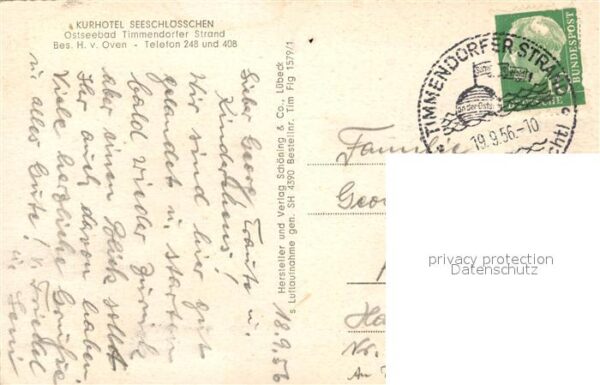 KURHOTEL SEESCHLÖSSCHEN
Ostseebad Timmendorfer Strand
Bes. H. v. Oven - Telefon 248 und 408
18.9.56
Lieber Georg, Traute u.
Kinderlein!
Wir sind hier gut
gelandet u. starten
bald wieder zurück
aber einen Blick sollt
Ihr auch davon haben.
Viele herzliche Grüße
u. alles Gute! v. Friedel
u.
Hersteller und Verlag Schöning & Co., Lübeck
s Luftaufnahme gen. SH 4390 Bestellnr. Tim Flg 1579/1
TIMMENDORFER STRAND
an der Ostsee
19.9.56.-10
DEUTSCHE
BUNDESPOST
10
Familie
Geor
Ha
Nr.
An
privacy protection
Datenschutz